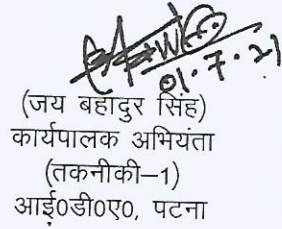 01.7.21
(जय बहादुर सिंह)
कार्यपालक अभियंता
(तकनीकी–1)
आई0डी0ए0, पटना